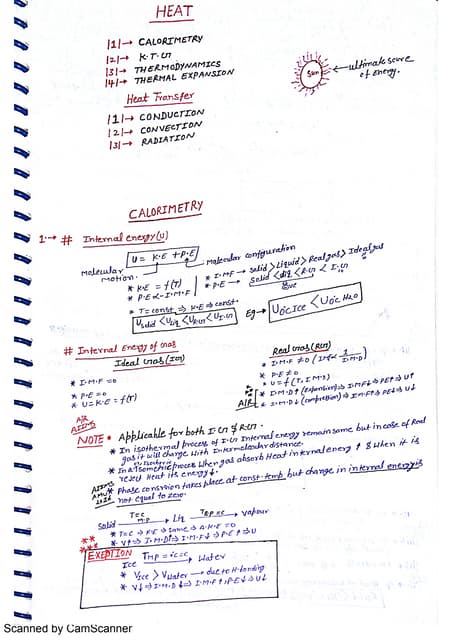 HEAT
|1|→ CALORIMETRY
|2|→ K.T.G
|3|→ THERMODYNAMICS
|4|→ THERMAL EXPANSION
Sun
ultimate source
of Energy.
Heat Transfer
|1|→ CONDUCTION
|2|→ CONVECTION
|3|→ RADIATION
CALORIMETRY
1→ # Internal energy(U)
U = K.E + P.E
Molecular configuration
Molecular
Motion.
* K.E = f(T)
* P.E ∝ -I.M.F
* T = const ⇒ K.E = const.
* I.M.F → Solid > Liquid > Real gas > Ideal gas
* P.E → Solid < Liq < R.G < I.G
U solid < U Liq < U R.G < U I.G
Eg → U 0°C Ice < U 0°C H2O
# Internal Energy of Gas
Ideal Gas (IG)
* I.M.F = 0
* P.E = 0
* U = K.E = f(T)
Real Gas (RG)
* I.M.F ≠ 0 (IMF ∝ 1/I.M.D)
* P.E ≠ 0
* U = f(T, I.M.D)
* I.M.D↑ (Expansion) ⇒ I.M.F↓ ⇒ PE↑ ⇒ U↑
* I.M.D↓ (Compression) ⇒ I.M.F↑ ⇒ PE↓ ⇒ U↓
AIIMS
NOTE * Applicable for both I.G & R.G.
* In isothermal process of I.G Internal energy remain same but in case of Real
gas it will change with Intermolecular distance.
* In Isometric process When gas absorb Heat internal energy ↑ & When it is
reject Heat its energy ↓.
AIIMS
* Phase conversion takes place at const. temp but change in internal energy is
not equal to zero.
Solid → Liq → vapour
* T = C ⇒ K.E = Same ⇒ Δ K.E = 0
* V↑ ⇒ I.M.D↑ ⇒ I.M.F↓ ⇒ P.E↑ ⇒ U↑
EXEPTION
Ice Tmp = 0°C Water
* V Ice > V Water → due to H-bonding
* V↓ ⇒ I.M.D↓ ⇒ I.M.F↑ P.E↓ U↓
Scanned by CamScanner